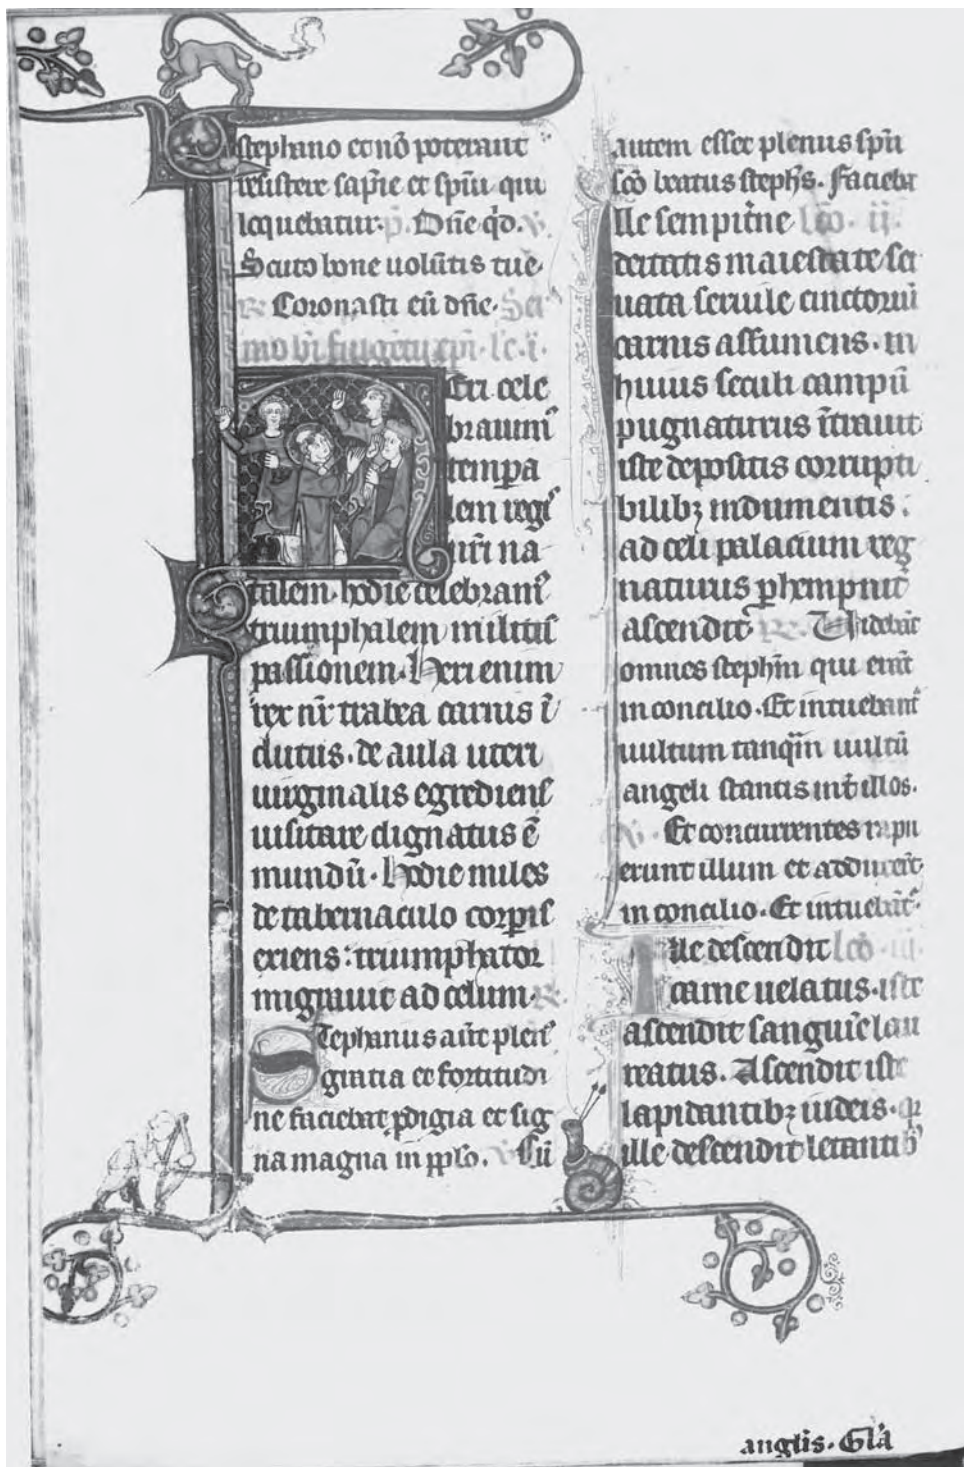 stephano et nō poterant
resistere sapīe et spūi qui
loquebatur. p̄. Dn̄e q̇d. v̄.
Scuto bone uolūtis tue.
R̄. Coronasti eū dn̄e. Ser
mo bī fulgētii ep̄i. lc̄. i.
Eri cele
brauim᷒
tempꝑa
lem regis
nr̄i na
talem. hodie celebram᷒
triumphalem militis
passionem. Heri enim
rex nr̄ trabea carnis ī
dutus. de aula uteri
uirginalis egrediens
uisitare dignatus ē
mundū. Hodie miles
de tabernaculo corpꝑis
exiens: triumphator
migrauit ad celum. R̄.
Stephanus aūt plen᷒
gratia et fortitudi
ne faciebat ꝓdigia et sig
na magna in pplo. v̄. Cū
autem esset plenus spū
scō beatus steph̄s. faciebat
Ille sempit̄ne lc̄o. ii.
deitatis maiestate ser
uata seruile cinctoriū
carnis assumens. in
huius seculi campū
pugnaturus ītrauit
iste depositis corrupti
bilibꝫ indumentis.
ad celi palacium reg
naturus ꝑhempnit̄
ascendit. R̄. Videbāt
omnes steph̄m qui erāt
in concilio. Et intuebant᷑
uultum tanq̄m uultū
angeli stantis int̄ illos.
v̄. Et concurrentes rapu
erunt illum et adduxer̄t
in concilio. Et intuebāt᷑.
Ille descendit lc̄o. iii.
carne uelatus. iste
ascendit sanguīe lau
reatus. Ascendit iste
lapidantibꝫ iudeis. qr
ille descendit letantib᷒
anglis. Glā